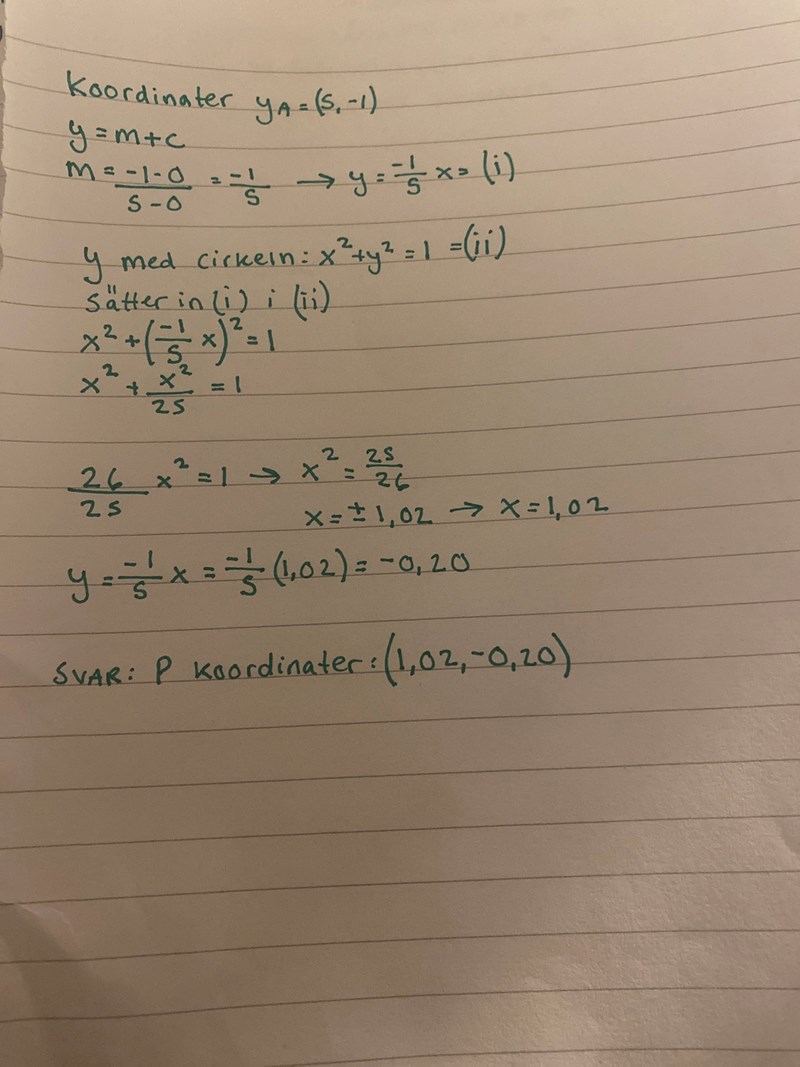 Koordinater yA = (5, -1)
y = m + c
m = -1-0/5-0 = -1/5 → y = -1/5 x = (i)
y med cirkeln: x² + y² = 1 = (ii)
Sätter in (i) i (ii)
x² + (-1/5 x)² = 1
x² + x²/25 = 1
26/25 x² = 1 → x² = 25/26
x = ± 1,02 → x = 1,02
y = -1/5 x = -1/5 (1,02) = -0,20
SVAR: P koordinater: (1,02, -0,20)